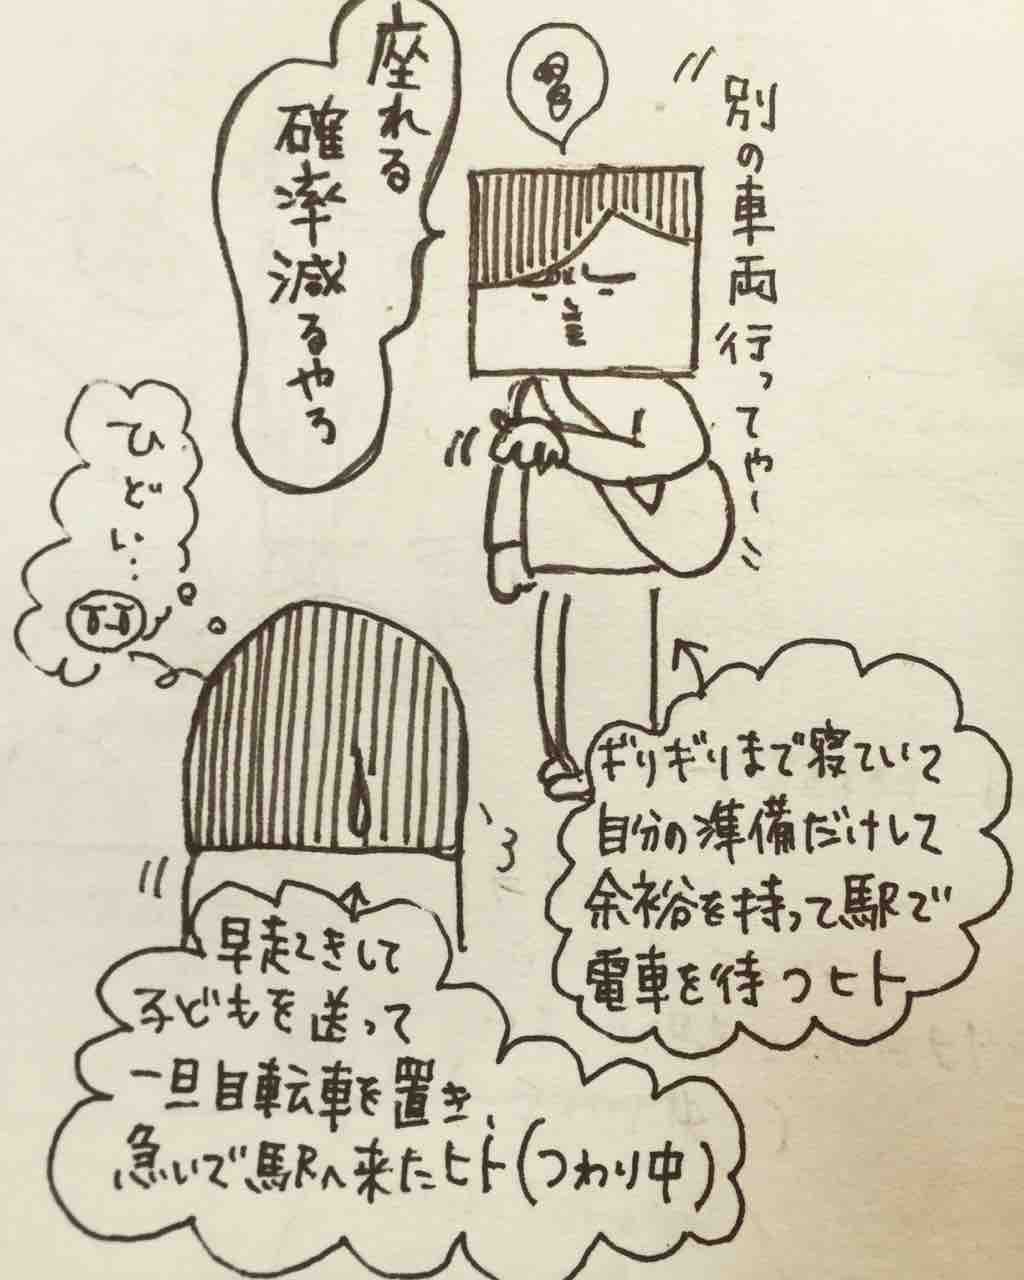 別の車両行ってやー
座れる
確率減るやろ
ひどい…
ギリギリまで寝ていて
自分の準備だけして
余裕を持って駅で
電車を待つヒト
早起きして
子どもを送って
一旦自転車を置き、
急いで駅へ来たヒト(つわり中)